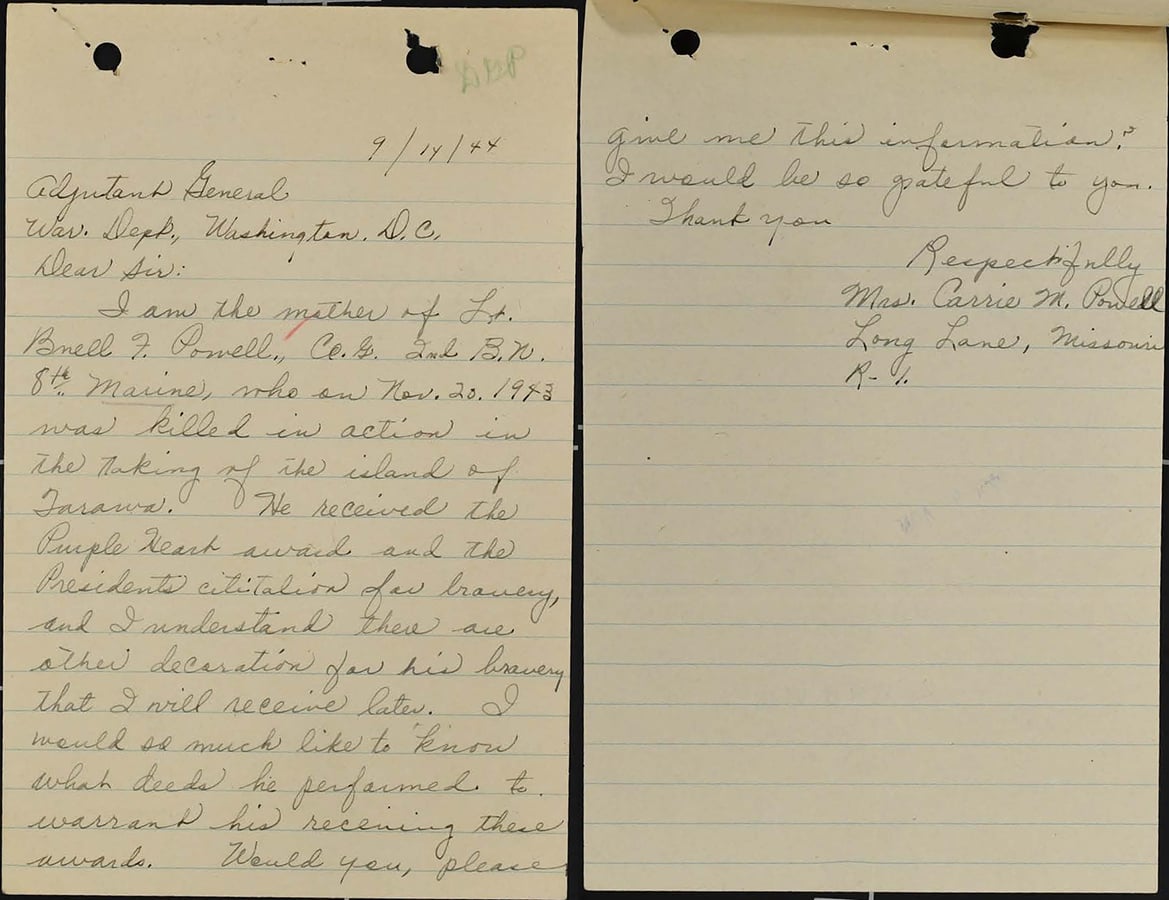 9/14/44
Adjutant General
War. Dept., Washington. D.C.
Dear Sir:
I am the mother of Lt.
Bnell F. Powell., Co. G. 2nd B.N.
8th. Marine, who on Nov. 20. 1943
was killed in action in
the taking of the island of
Tarawa. He received the
Purple Heart award and the
Presidents cititation for bravery,
and I understand there are
other decoration for his bravery
that I will receive later. I
would so much like to know
what deeds he performed to
warrant his receiving these
awards. Would you, please
give me this information?
I would be so grateful to you.
Thank you
Respectifully
Mrs. Carrie M. Powell
Long Lane, Missouri
R- 1.